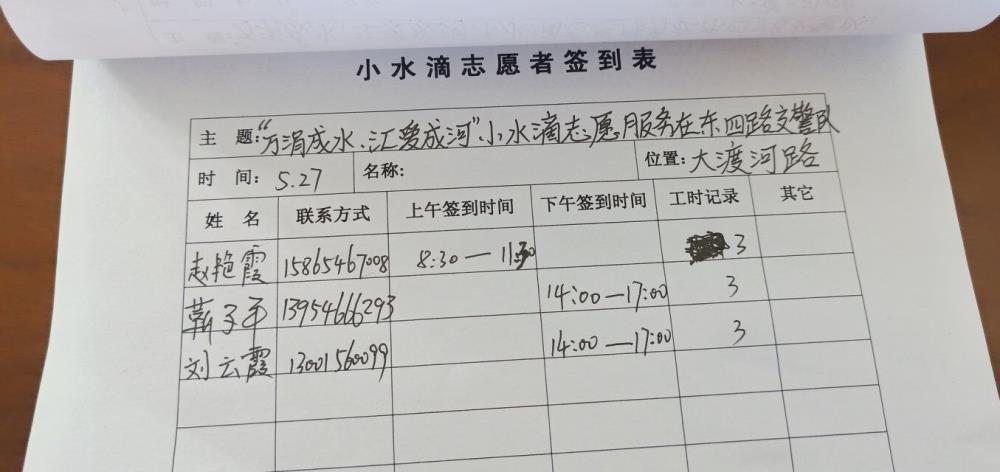 小水滴志愿者签到表
主 题:“万涓成水、汇爱成河”小水滴志愿服务在东四路交警队
时 间: 5.27 名称: 位置: 大渡河路
姓 名 联系方式 上午签到时间 下午签到时间 工时记录 其它
赵艳霞 15865467008 8:30—11:30 3
靳子平 13954666293 14:00—17:00 3
刘云霞 13001560099 14:00—17:00 3